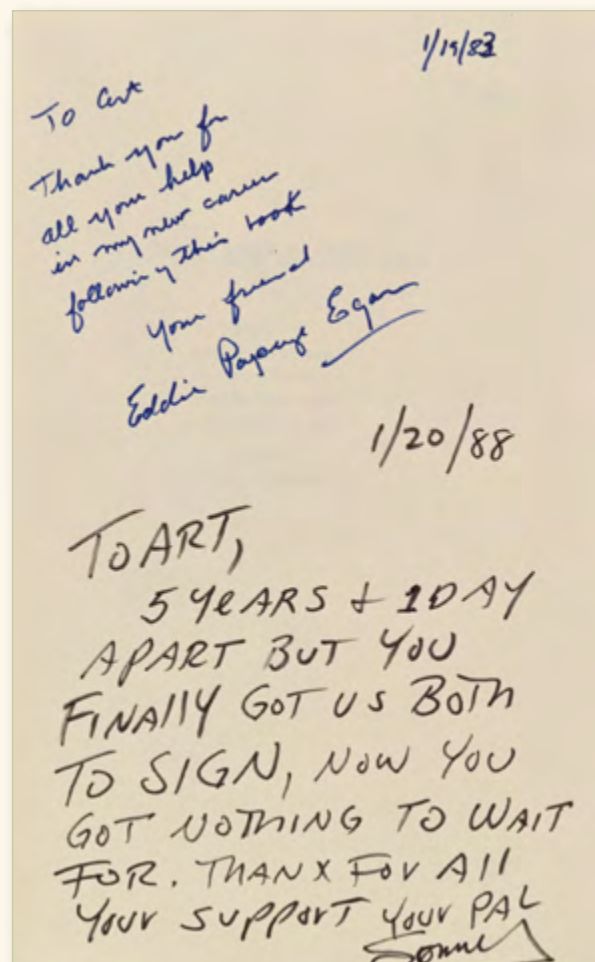 1/19/83
To Art
Thank you for
all your help
in my new career
following this book
Your friend
Eddie Popeye Egan
1/20/88
TO ART,
5 YEARS + 1 DAY
APART BUT YOU
FINAllY GOT US BOTH
TO SIGN, NOW YOU
GOT NOTHING TO WAIT
FOR. THANX FOR All
YOUR SUPPORT YOUR PAL
Sonny